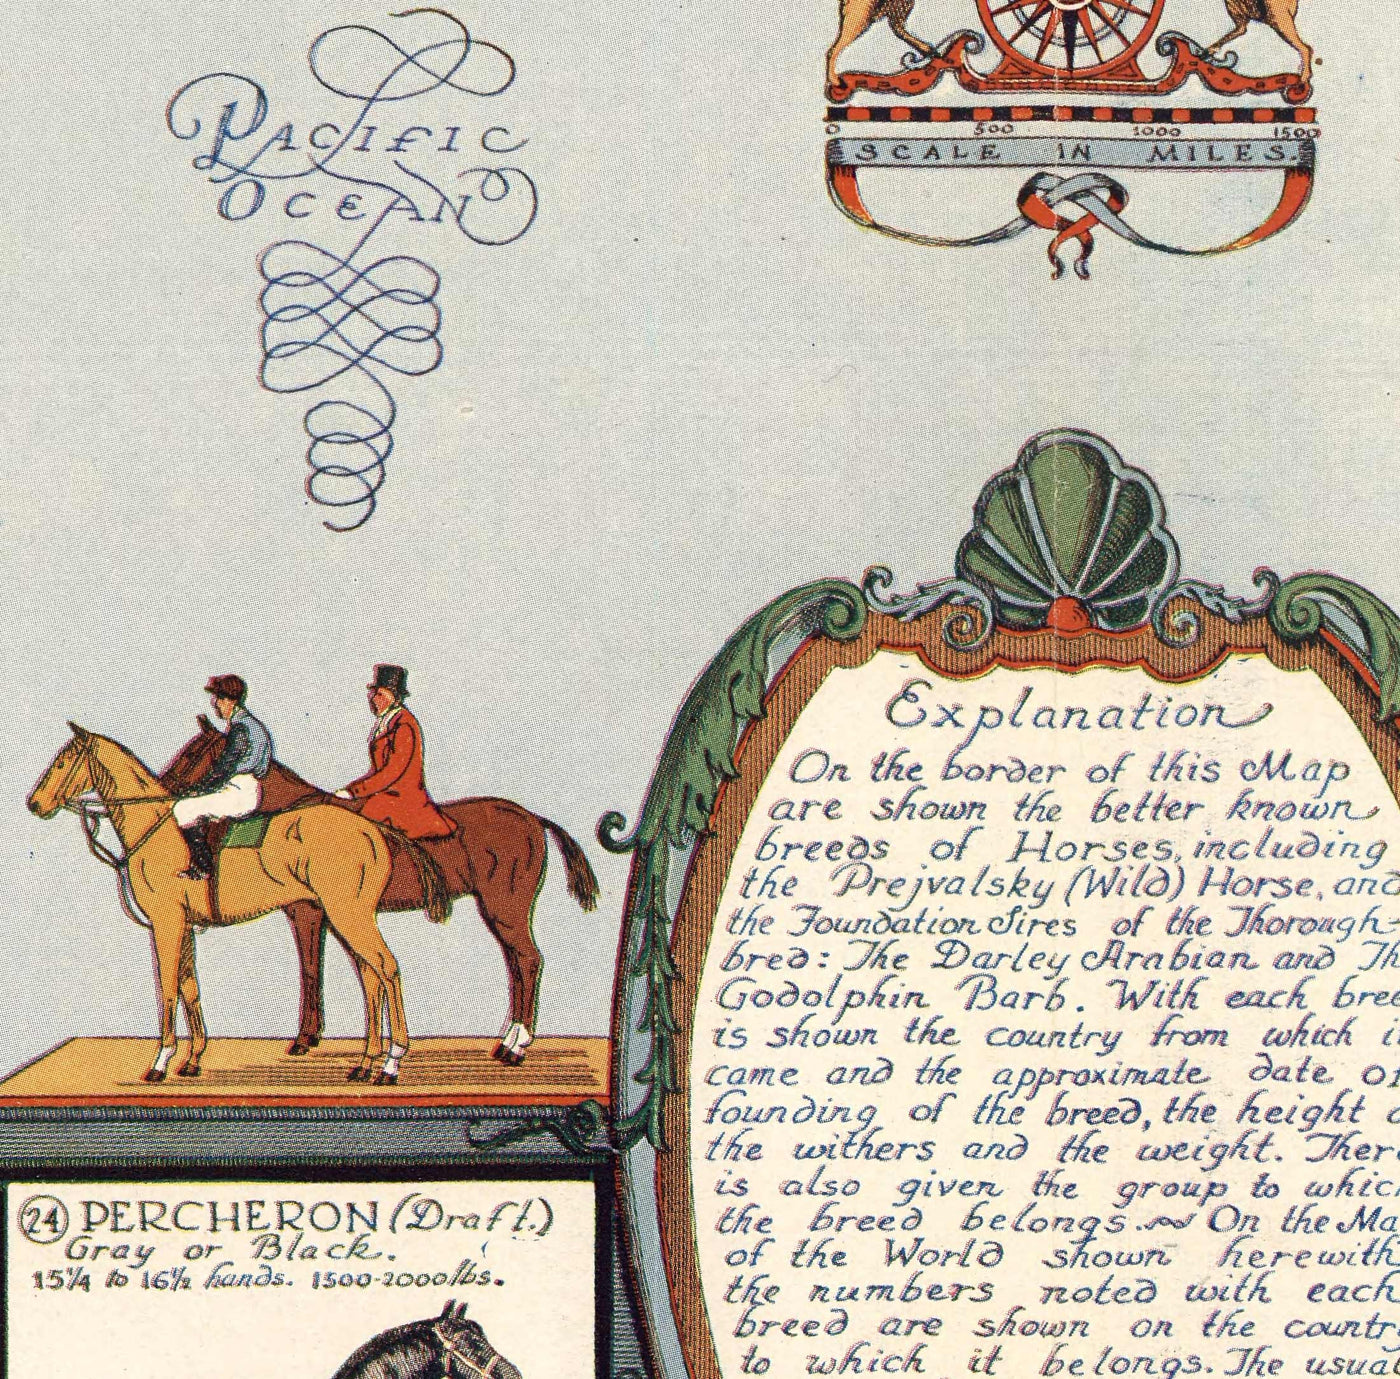 PACIFIC
OCEAN
0 500 1000 1500
SCALE IN MILES.
Explanation
On the border of this Map
are shown the better known
breeds of Horses, including
the Prejvalsky (Wild) Horse, and
the Foundation Sires of the Thorough-
bred: The Darley Arabian and Th
Godolphin Barb. With each bree
is shown the country from which i
came and the approximate date of
founding of the breed, the height
the withers and the weight. Ther
is also given the group to whic
the breed belongs. On the Ma
of the World shown herewith
the numbers noted with each
breed are shown on the countr
to which it belongs. The usual
24 PERCHERON (Draft.)
Gray or Black.
15¼ to 16½ hands. 1500-2000 lbs.